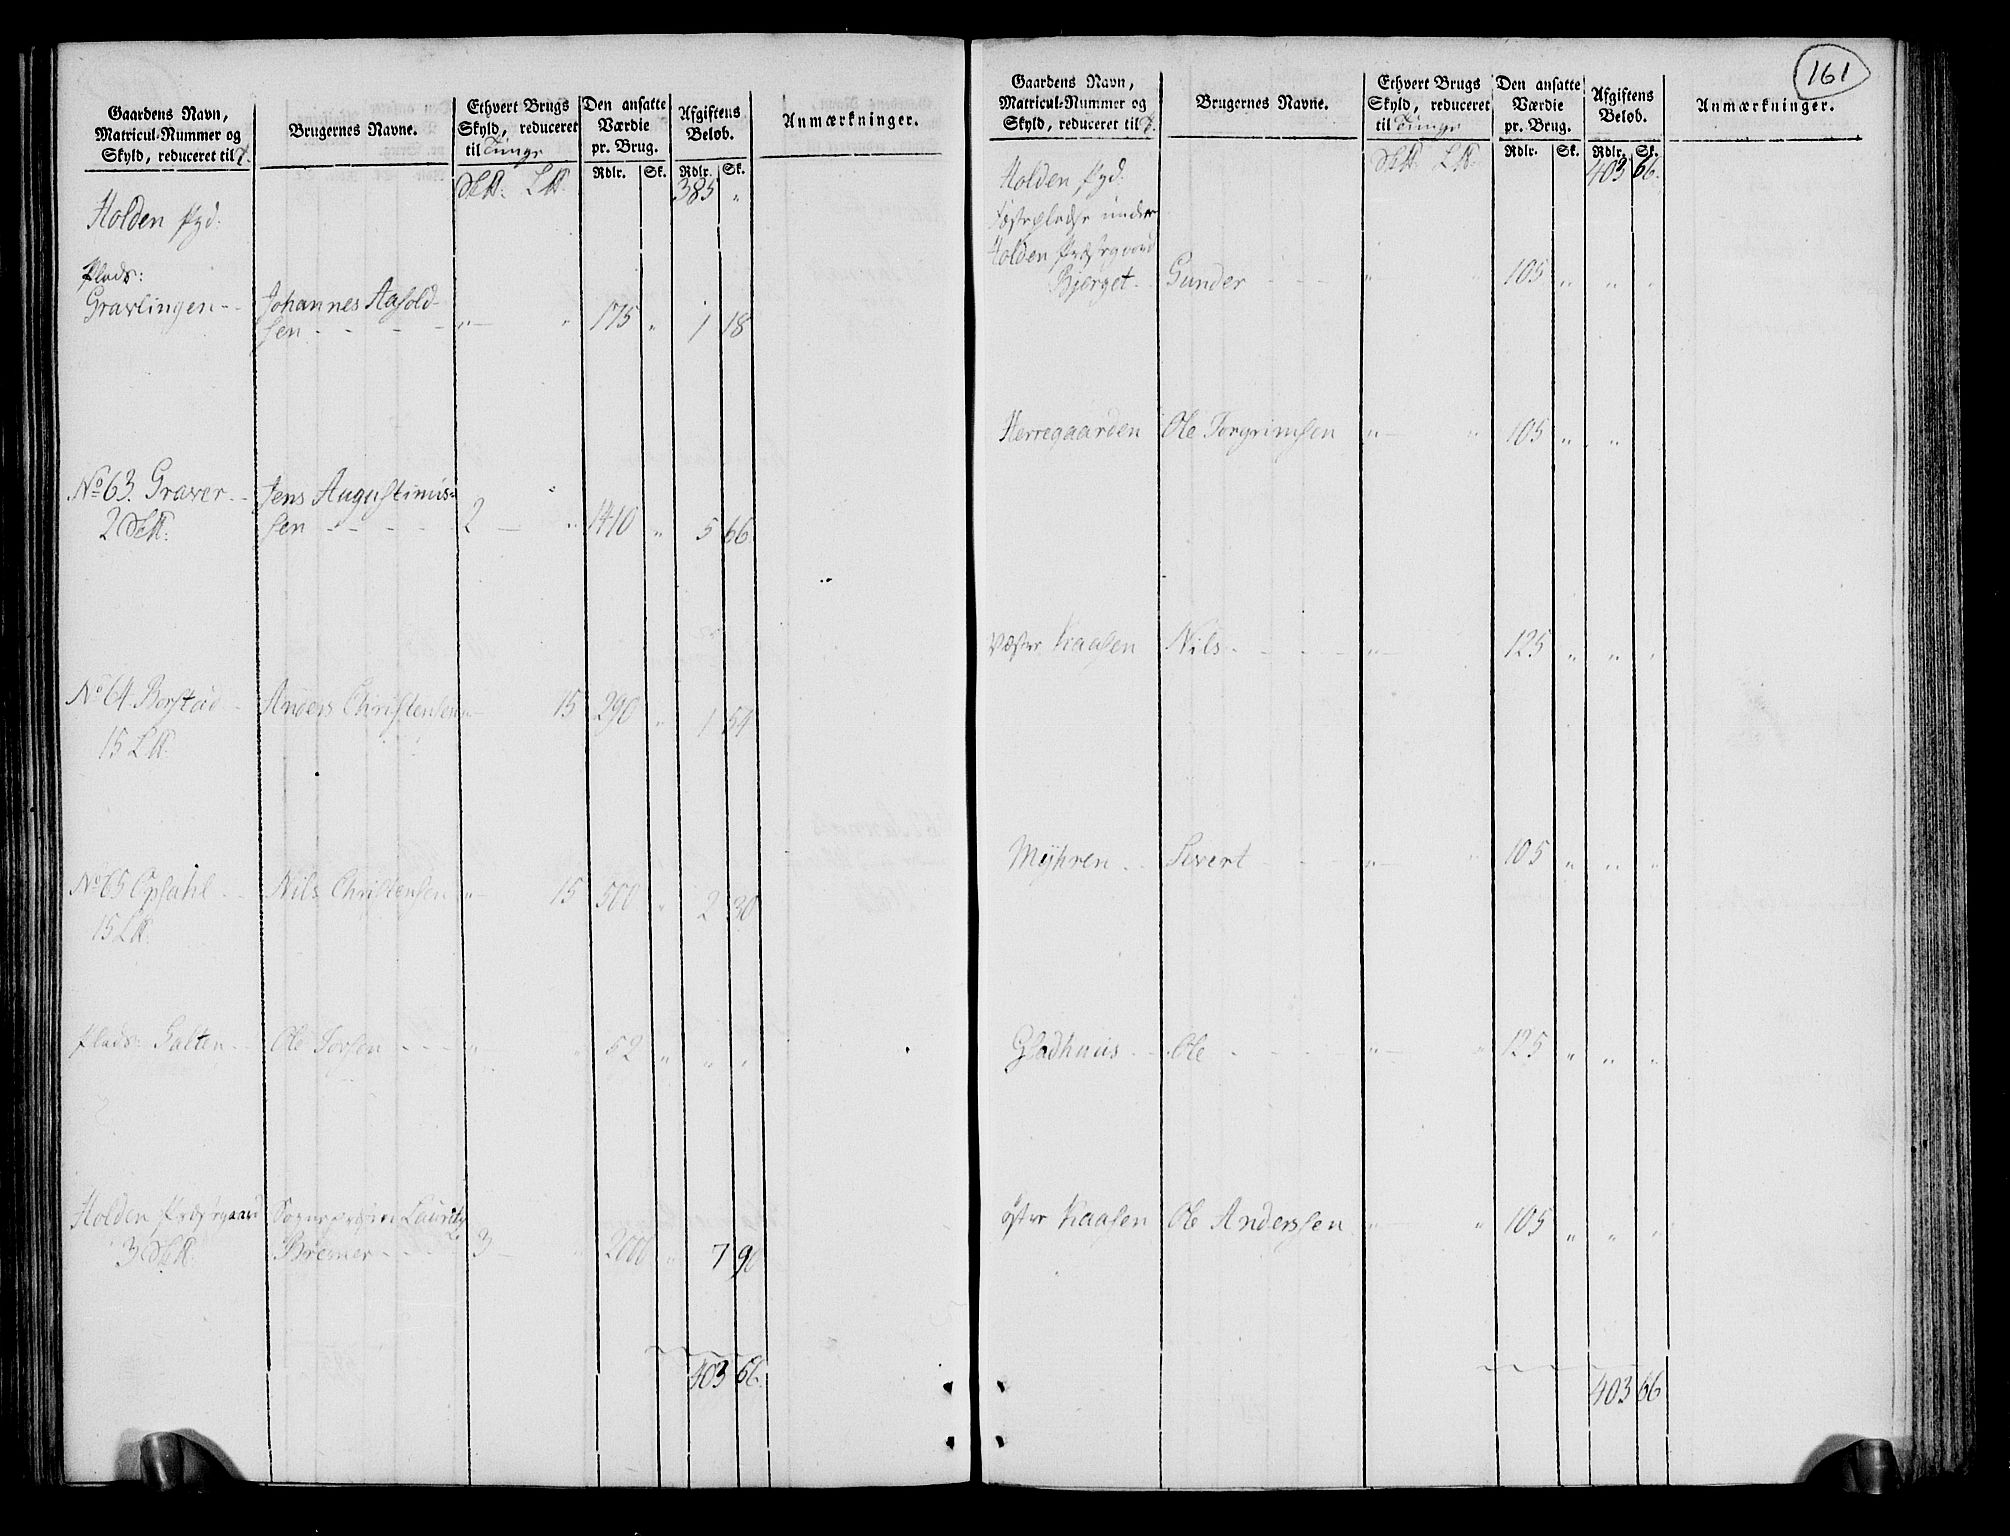 Gaardens Navn,
Matricul-Nummer og
Skyld, reduceret til
Brugernes Navne.
Ethvert Brugs
Skyld, reduceret
til Tunge
Den ansatte
Værdie
pr. Brug.
Rdlr. Sk.
Afgiftens
Beløb.
Rdlr. Sk.
Anmærkninger.
385 "
Holden
Plads:
Gravlingen -- Johannes Aasold-
sen - - - - "— " 175 " 1 18
No 63. Graver -- Jens Augustinus-
2 sen - - - - 2 — " 1410 " 5 66
No 64 Borstad - Anders Christensen "— 15 290 " 1 54
15
No 65 Opsahl -- Nils Christensen "— 15 500 " 2 30
15
Plads: Galten -- Ole - - - " " 52 " " "
Holden Præstegaard Sogneprest Lauritz
3 Bremer - - - 3 — " 2000 " 7 90
403 66.
161
Gaardens Navn,
Matricul-Nummer og
Skyld, reduceret til
Brugernes Navne.
Ethvert Brugs
Skyld, reduceret
til Tunge
Den ansatte
Værdie
pr. Brug.
Rdlr. Sk.
Afgiftens
Beløb.
Rdlr. Sk.
Anmærkninger.
403 66.
Holden
under
Holden Præstegaard
Bjerget - Gunder - - - " " 105 " " "
Herregaarden Ole Torgrimsen "— " 105 " "
Vester Kaasen Nils - - - - "— " 125 " " "
Myhren - - Sivert - - - "— " 105 " " "
Gladhuus - - Ole - - - - "— " 125 " " "
Øster Kaasen Ole Anderssen "— " 105 " " "
403 66